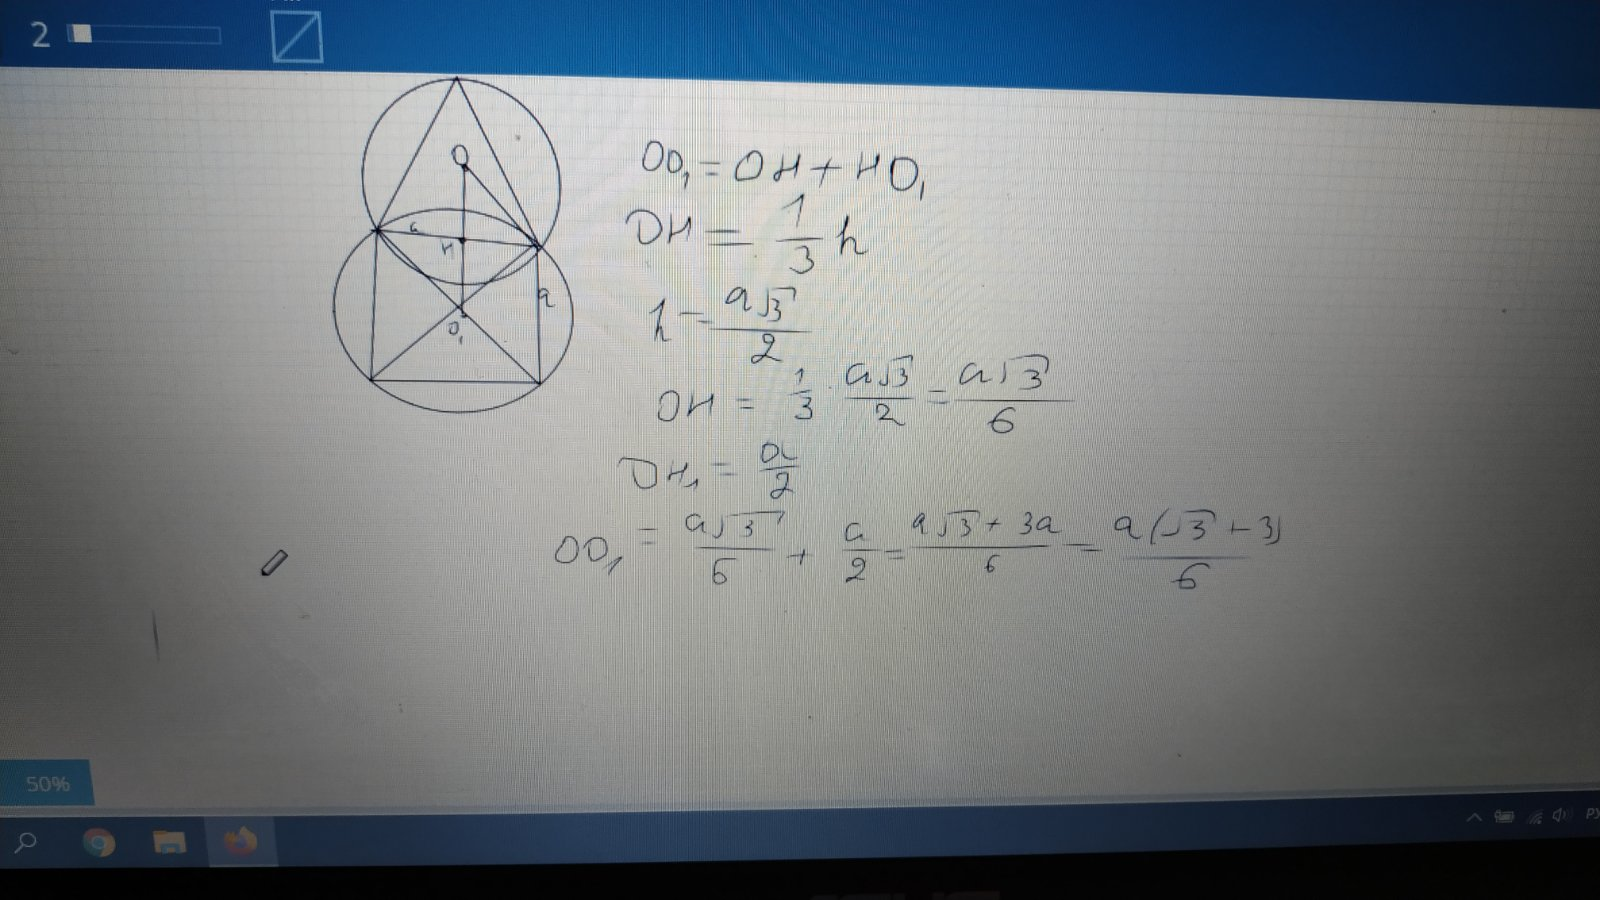 2
O
a
H
a
O₁
OO₁ = OH + HO₁
OH = 1/3 h
h = a√3/2
OH = 1/3 · a√3/2 = a√3/6
OH₁ = a/2
OO₁ = a√3/6 + a/2 = a√3 + 3a/6 = a(√3 + 3)/6
50%